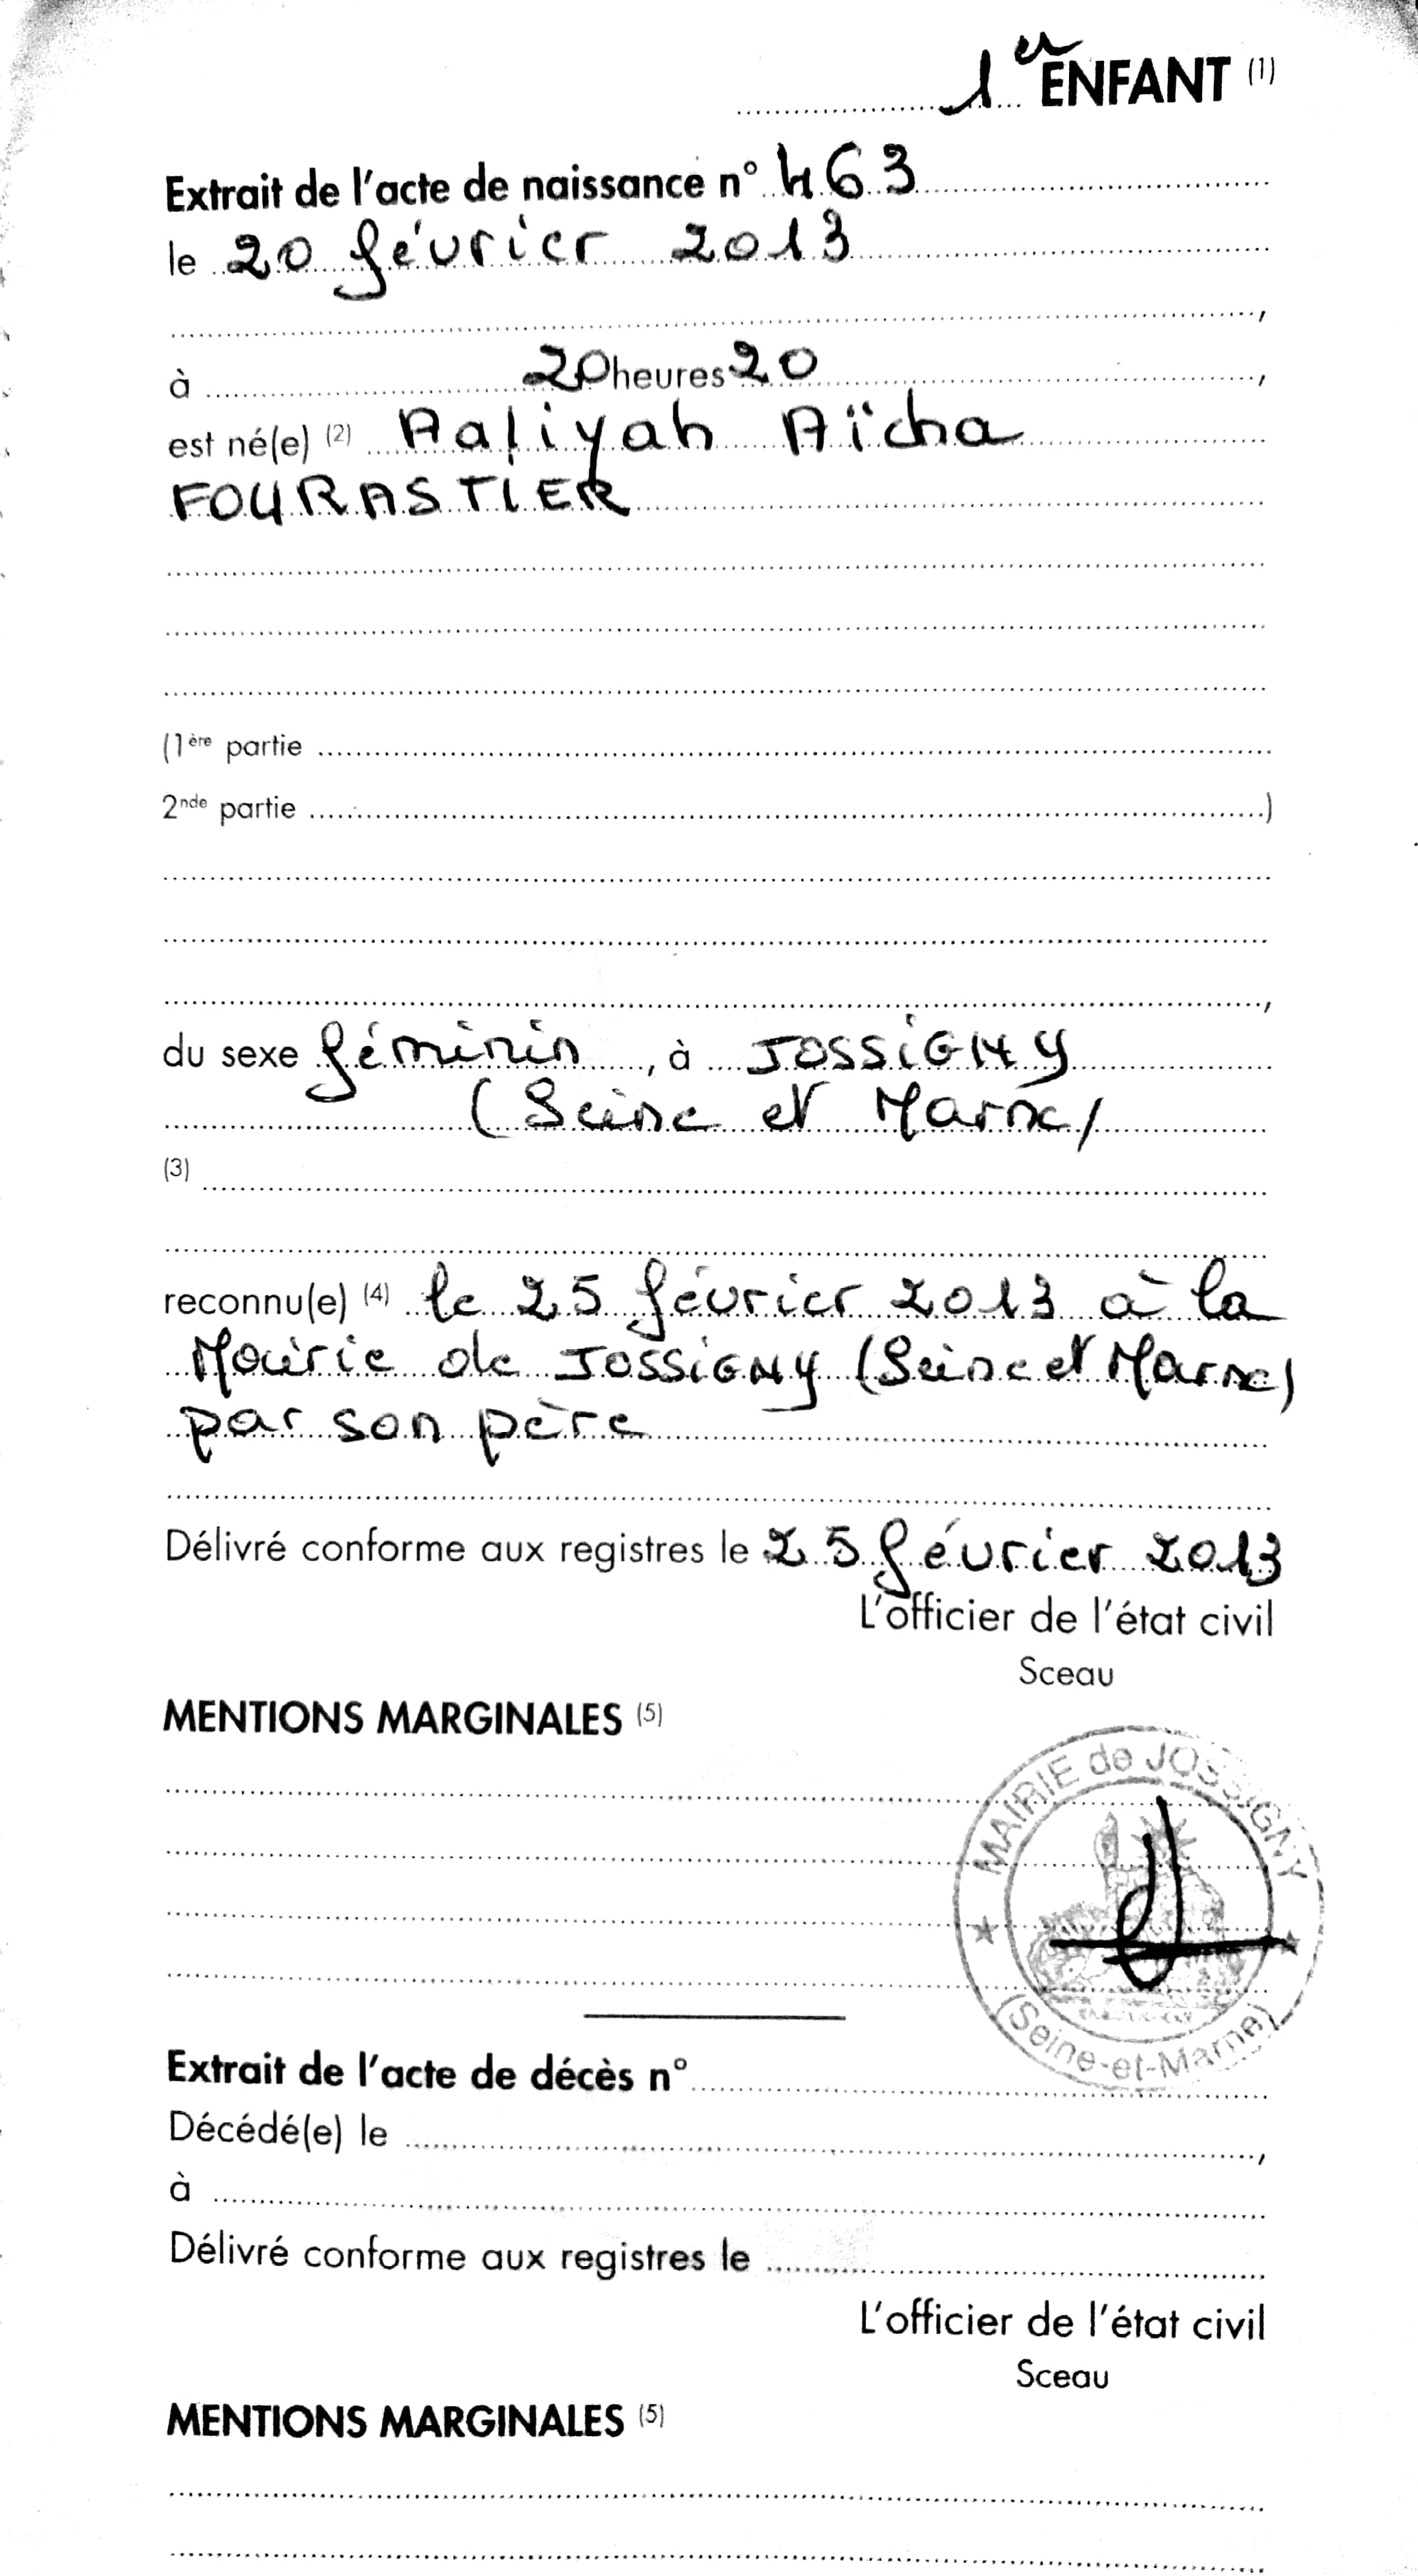 1er ENFANT (1)
Extrait de l'acte de naissance n° 463
le 20 février 2013
,
à 20 heures 20,
est né(e) (2) Aaliyah Aïcha
FOURASTIER
(1ère partie
2nde partie )
,
du sexe féminin, à JOSSIGNY
(Seine et Marne)
(3)
reconnu(e) (4) le 25 février 2013 à la
Mairie de JOSSIGNY (Seine et Marne)
par son père
Délivré conforme aux registres le 25 février 2013
L'officier de l'état civil
Sceau
MENTIONS MARGINALES (5)
MAIRIE de JOSSIGNY
(Seine-et-Marne)
Extrait de l'acte de décès n°
Décédé(e) le ,
à
Délivré conforme aux registres le
L'officier de l'état civil
Sceau
MENTIONS MARGINALES (5)